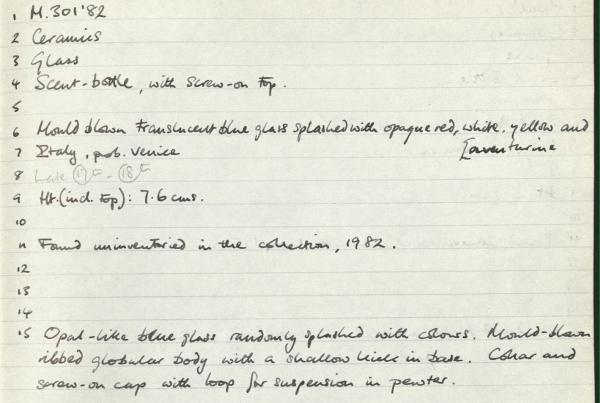 1 M.301'82
2 Ceramics
3 Glass
4 Scent-bottle, with screw-on top.
5
6 Mould blown translucent blue glass splashed with opaque red, white, yellow and
[aventurine
7 Italy, prob. Venice
8 Late 17th - 18th
9 Ht. (incl. top): 7.6 cms.
10
11 Found uninventoried in the collection, 1982.
12
13
14
15 Opal-like blue glass randomly splashed with colours. Mould-blown
ribbed globular body with a shallow kick in base. Collar and
screw-on cap with loop for suspension in pewter.